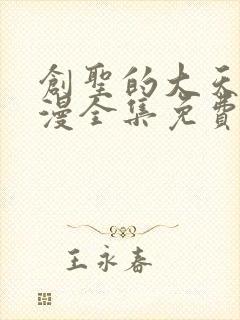 創聖的大天
漫全集免費
王永春